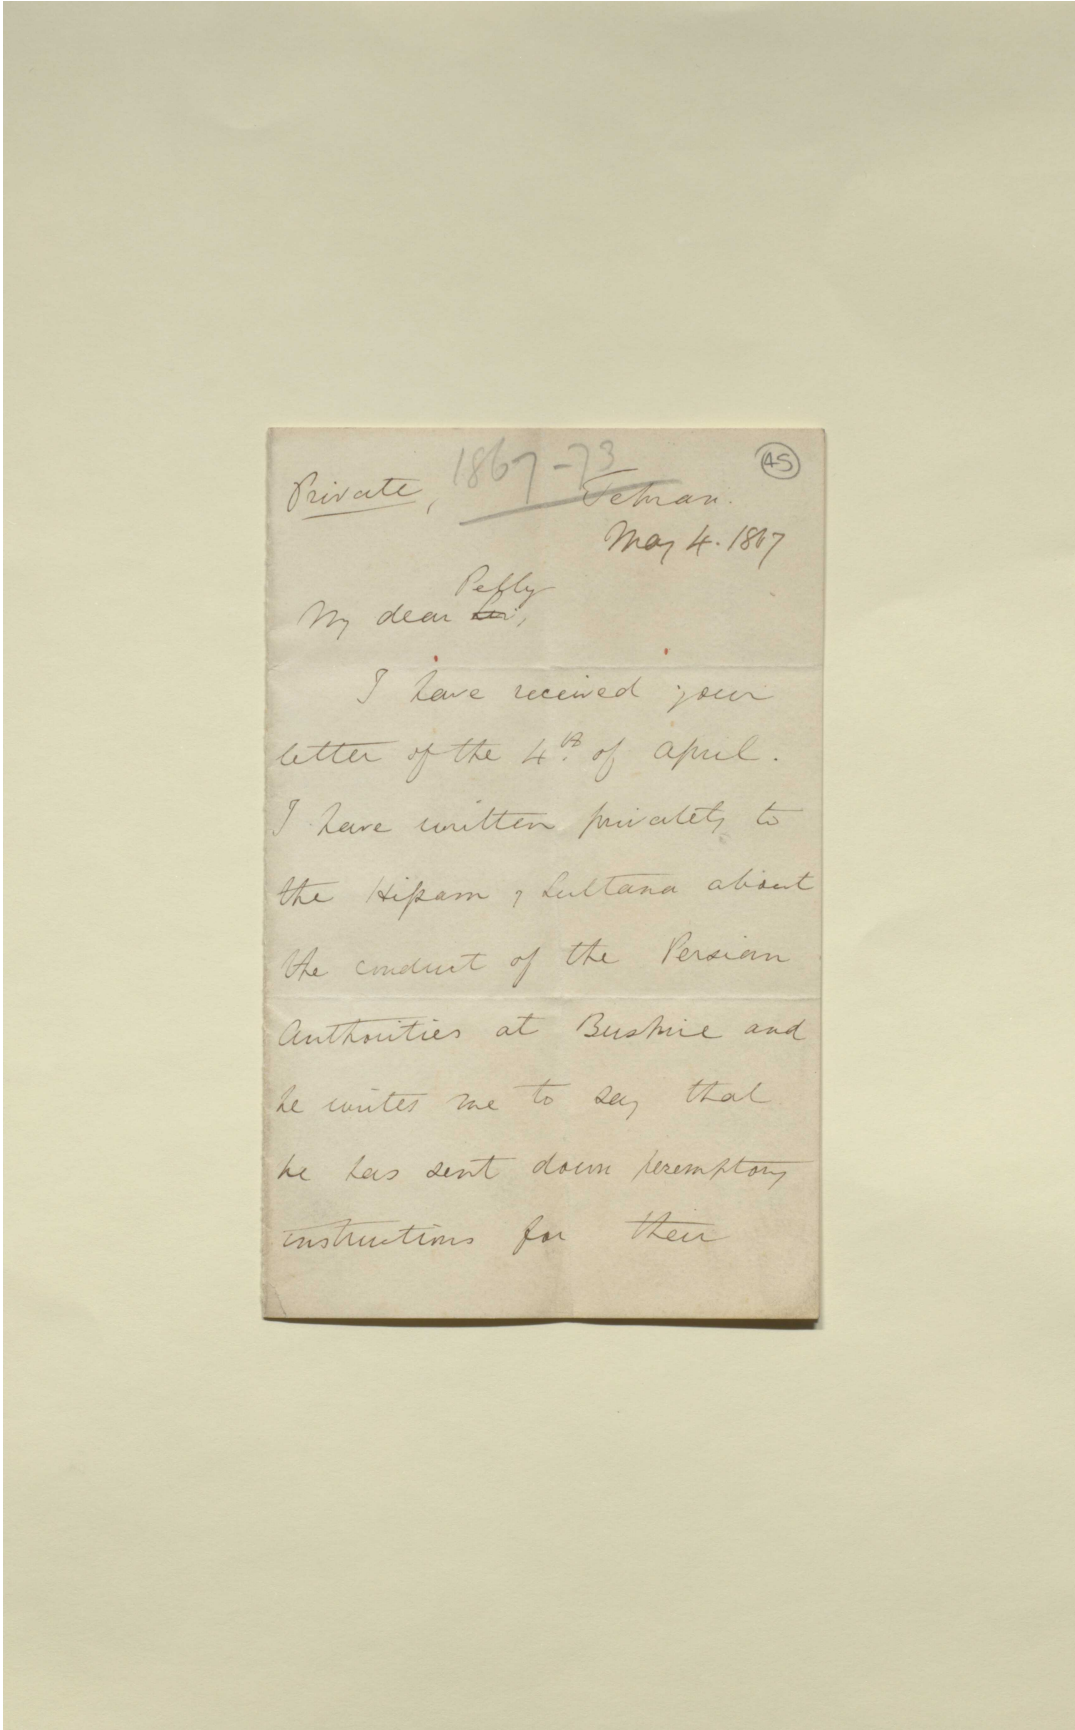 1867-73
45
Private,
Tehran.
May 4. 1867
Pelly
My dear Sir,
I have received your
letter of the 4th of April.
I have written privately to
the Hissam y Sultana about
the conduct of the Persian
Authorities at Bushire and
he writes me to say that
he has sent down peremptory
instructions for their